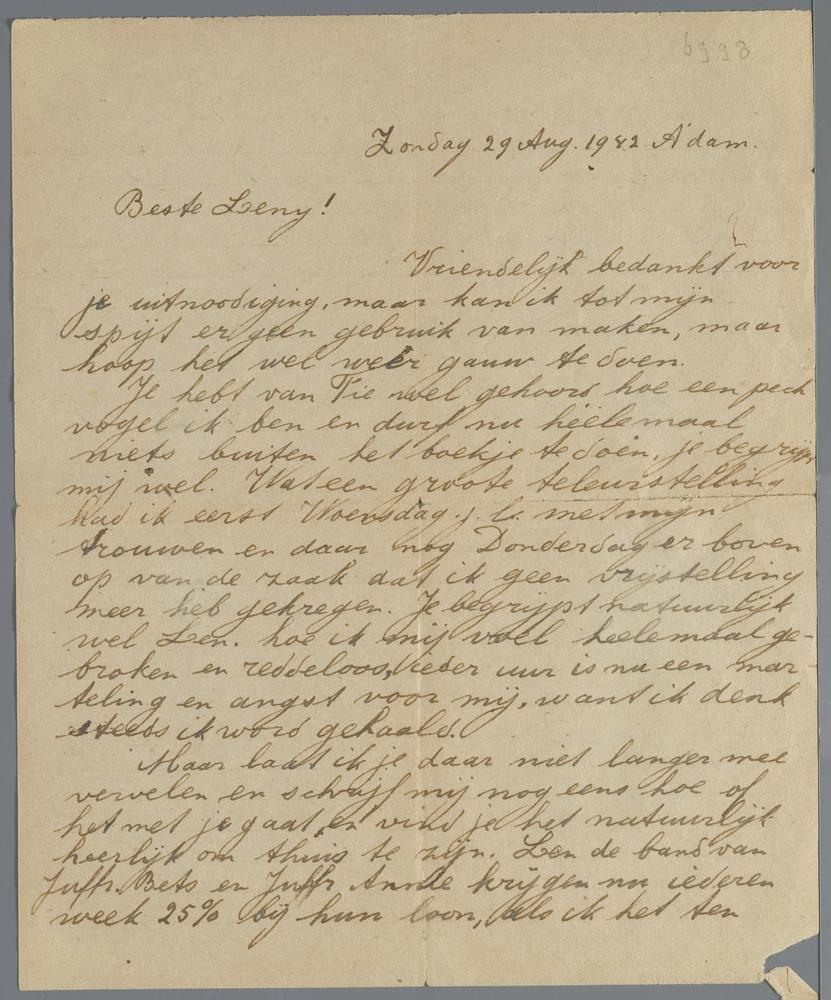 6998
Zondag 29 Aug. 1942 A'dam.
Beste Leny!
Vriendelijk bedankt voor
je uitnoodiging, maar kan ik tot mijn
spijt er geen gebruik van maken, maar
hoop het wel weer gauw te doen.
Je hebt van Tie wel gehoord hoe een pech
vogel ik ben en durf nu heelemaal
niets buiten het boekje te doen, je begrijpt
mij wel. Wat een groote teleurstelling
had ik eerst Woensdag j. l. met mijn
trouwen en daar nog Donderdag er boven
op van de zaak dat ik geen vrijstelling
meer heb gekregen. Je begrijpt natuurlijk
wel Len. hoe ik mij voel heelemaal ge-
broken en reddeloos, ieder uur is nu een mar
teling en angst voor mij, want ik denk
steeds ik word gehaald.
Maar laat ik je daar niet langer mee
vervelen en schrijf mij nog eens hoe of
het met je gaat, en vind je het natuurlijk
heerlijk om thuis te zijn. Len de band van
Juffr. Bets en Juffr Annie krijgen nu iederen
week 25% bij hun loon, als ik het ten